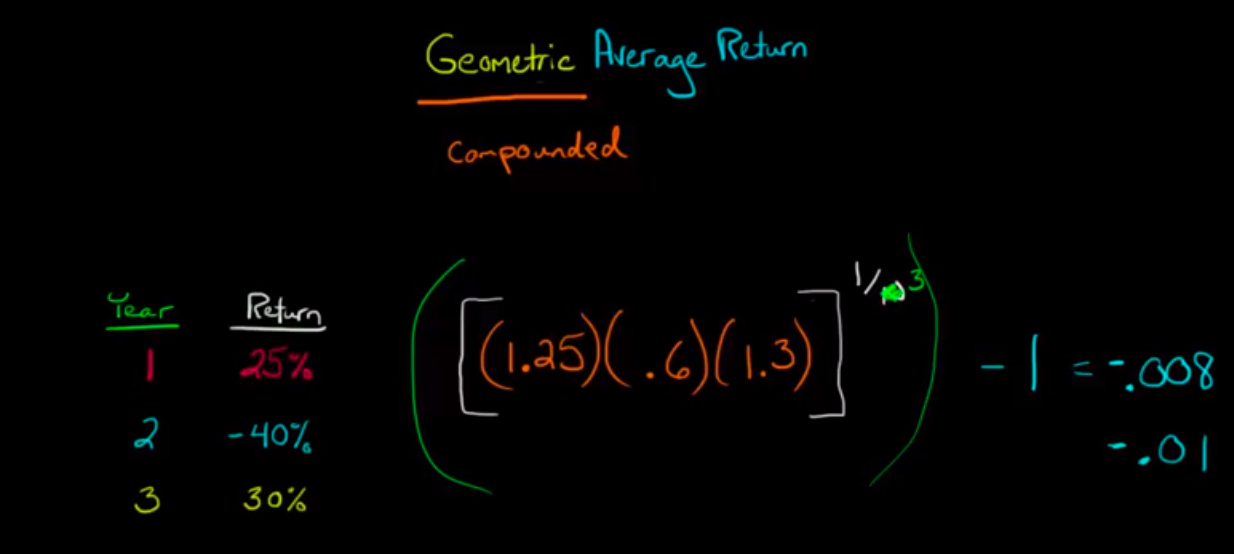 Geometric Average Return
Compounded
Year Return
1 25%
2 -40%
3 30%
([(1.25)(.6)(1.3)]^1/3) - 1 = -.008
-.01